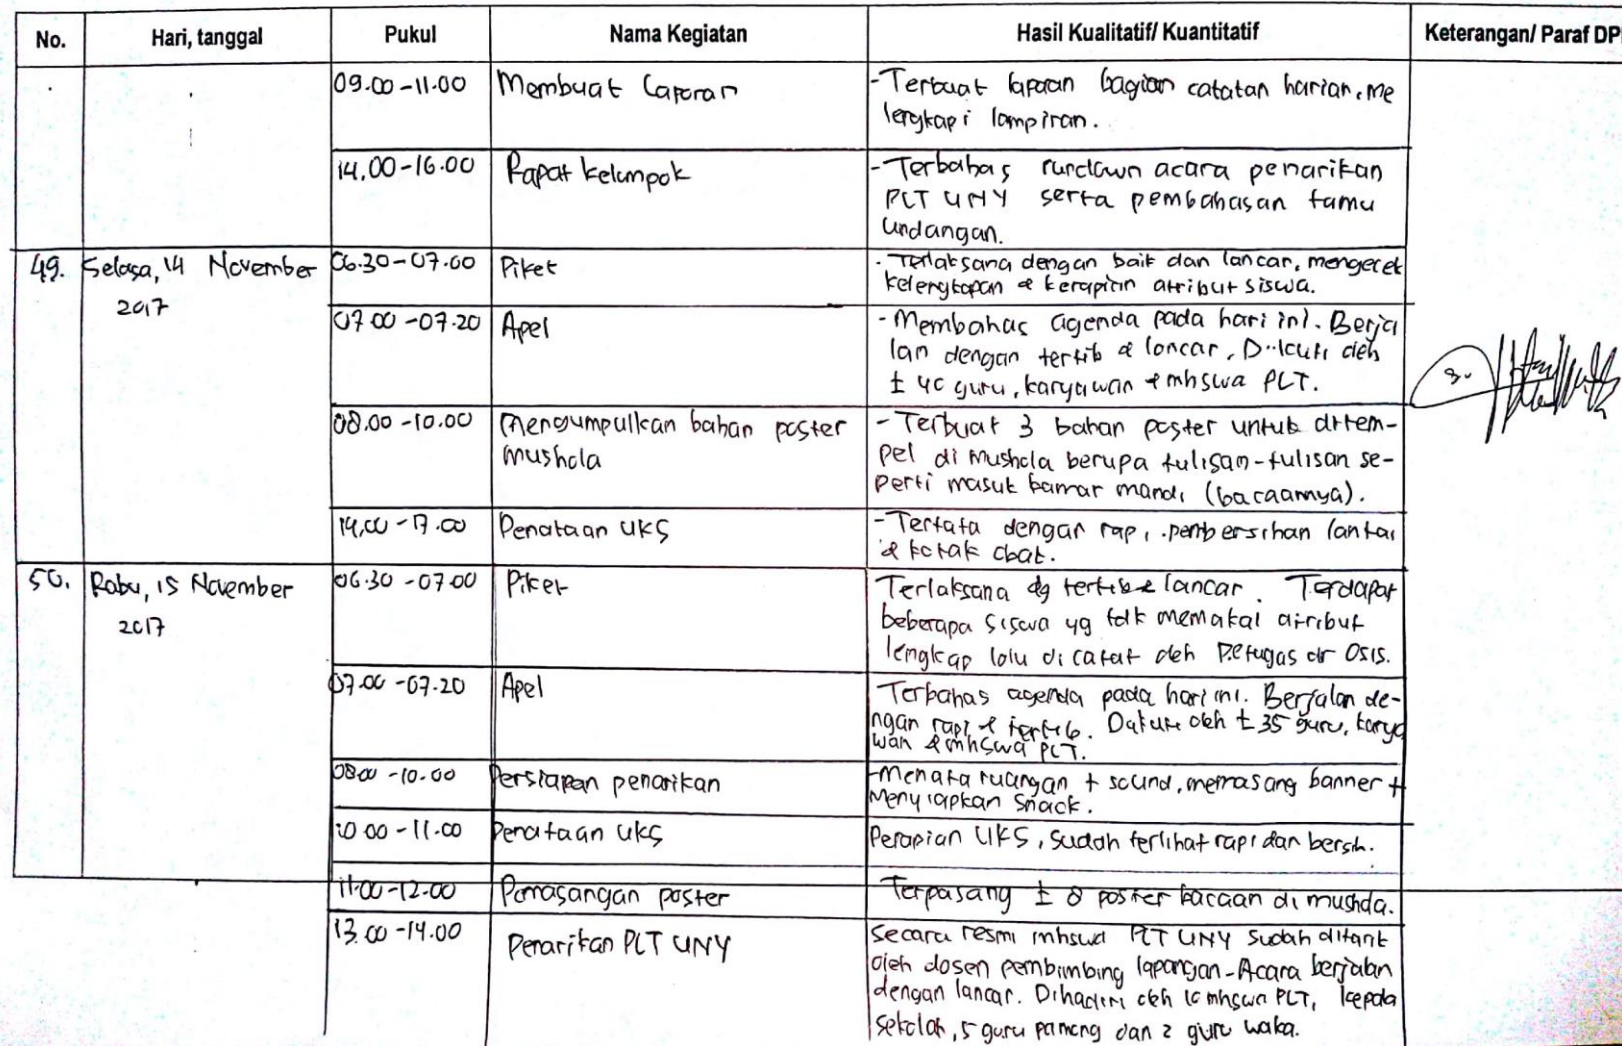 No. Hari, tanggal Pukul Nama Kegiatan Hasil Kualitatif/ Kuantitatif Keterangan/ Paraf DP
09.00-11.00 Membuat Laporan - Terbuat laporan bagian catatan harian, me
lengkapi lampiran.
14.00-16.00 Rapat kelompok - Terbahas rundown acara penarikan
PLT UNY serta pembahasan tamu
undangan.
49. Selasa, 14 November 06.30-07.00 Piket - Terlaksana dengan baik dan lancar, mengecek
2017 kelengkapan & kerapian atribut siswa.
07.00-07.20 Apel - Membahas agenda pada hari ini. Berja
lan dengan tertib & lancar. Diikuti oleh
± 40 guru, karyawan & mhswa PLT.
08.00-10.00 Mengumpulkan bahan poster - Terbuat 3 bahan poster untuk ditem-
mushola pel di mushola berupa tulisan-tulisan se-
perti masuk kamar mandi (bacaannya).
14.00-17.00 Penataan UKS - Tertata dengan rapi, pembersihan lantai
& kotak obat.
50. Rabu, 15 November 06.30-07.00 Piket Terlaksana dg tertib & lancar. Terdapat
2017 beberapa siswa yg tdk memakai atribut
lengkap lalu dicatat oleh petugas dr Osis.
07.00-07.20 Apel Terbahas agenda pada hari ini. Berjalan de-
ngan rapi & tertib. oleh ± 35 guru, karya
wan & mhswa PLT.
08.00-10.00 Persiapan penarikan - Menata ruangan + sound, memasang banner +
Menyiapkan snack.
10.00-11.00 Penataan UKS Perapian UKS, sudah terlihat rapi dan bersih.
11.00-12.00 Pemasangan poster Terpasang ± 8 poster bacaan di mushola.
13.00-14.00 Penarikan PLT UNY Secara resmi mhswa PLT UNY sudah ditarik
oleh dosen pembimbing lapangan. Acara berjalan
dengan lancar. Dihadiri oleh mhswa PLT, kepala
sekolah, 5 guru pamong dan 2 guru waka.